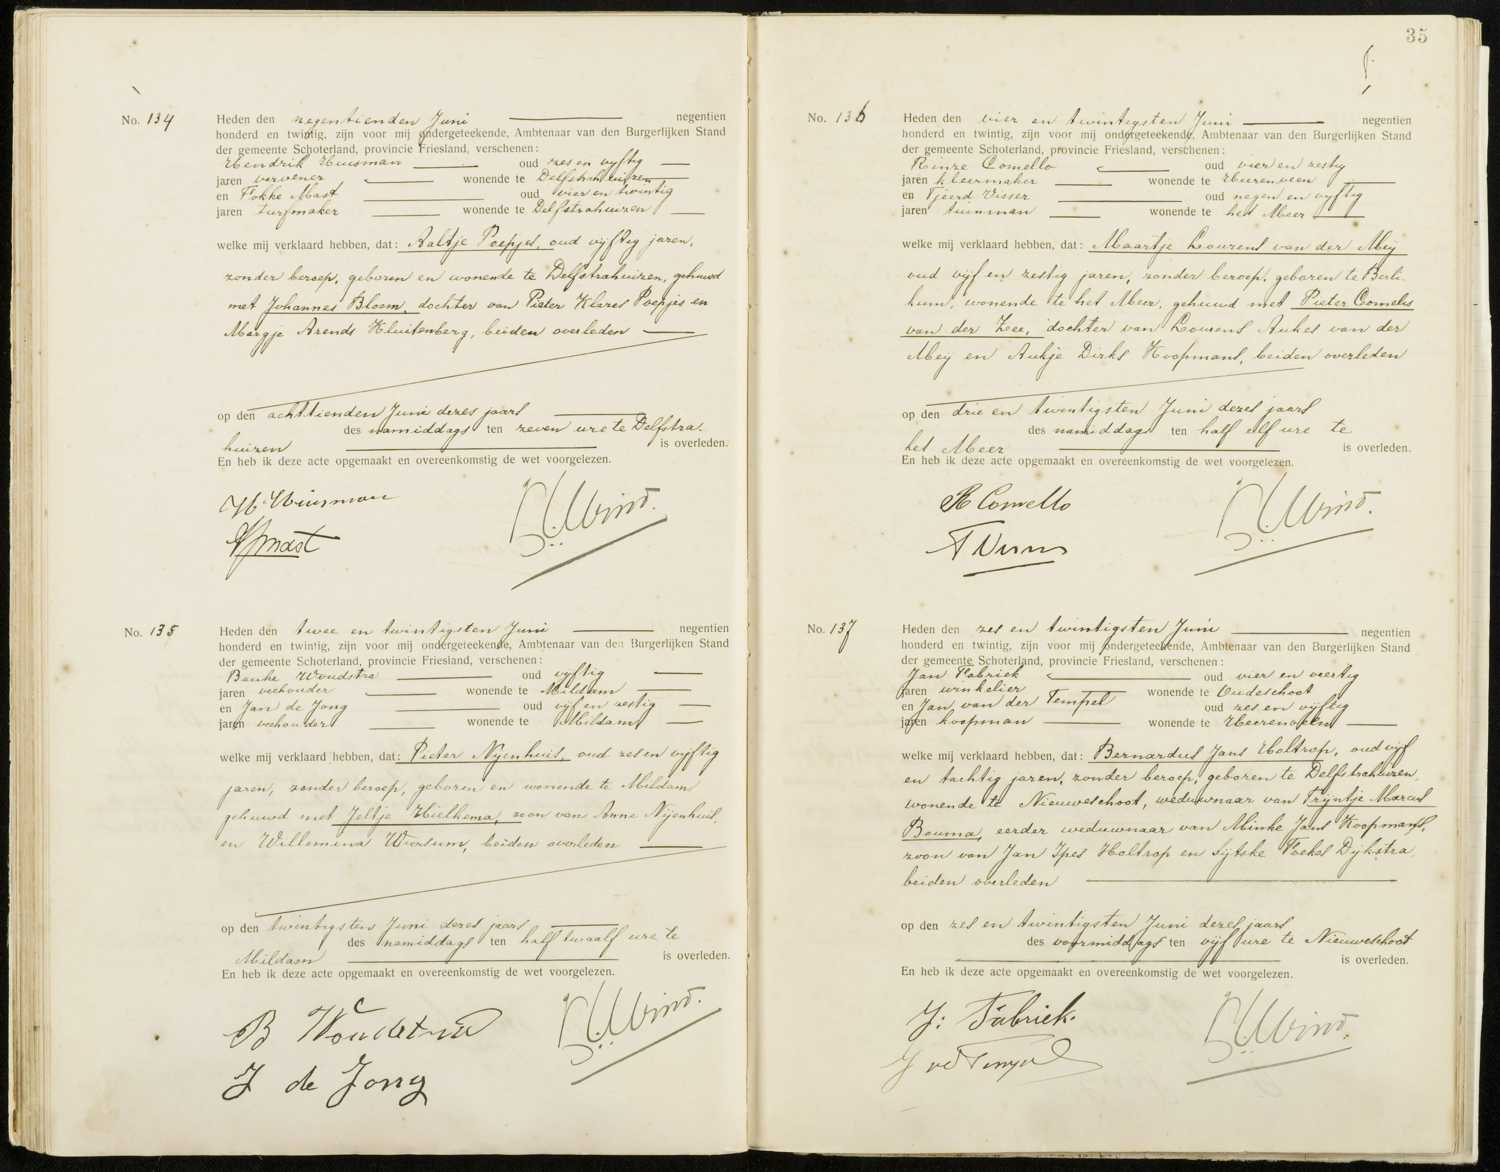 No. 134
Heden den negentienden Juni negentien
honderd en twintig, zijn voor mij ondergeteekende, Ambtenaar van den Burgerlijken Stand
der gemeente Schoterland, provincie Friesland, verschenen:
Hendrik Huisman oud zes en vyftig
jaren vervener wonende te Delfstrahuizen
en Fokke Mast oud vier en twintig
jaren turfmaker wonende te Delfstrahuizen
welke mij verklaard hebben, dat: Aaltje Poepjes, oud vyftig jaren,
zonder beroep, geboren en wonende te Delfstrahuizen, gehuwd
met Johannes Bloem, dochter van Pieter Klazes Poepjes en
Margje Arends Kluitenberg, beiden overleden
op den achttienden Juni dezes jaars
des namiddags ten zeven ure te Delfstra-
huizen is overleden.
En heb ik deze acte opgemaakt en overeenkomstig de wet voorgelezen.
H Huisman
F Mast
No. 135
Heden den twee en twintigsten Juni negentien
honderd en twintig, zijn voor mij ondergeteekende, Ambtenaar van den Burgerlijken Stand
der gemeente Schoterland, provincie Friesland, verschenen:
Bauke Woudstra oud vyftig
jaren veehouder wonende te Mildam
en Jan de Jong oud vyf en zestig
jaren veehouder wonende te Mildam
welke mij verklaard hebben, dat: Pieter Nyenhuis, oud zes en vyftig
jaren, zonder beroep, geboren en wonende te Mildam
gehuwd met Jeltje Hielkema, zoon van Anne Nyenhuis,
en Willemina Wiersum, beiden overleden
op den twintigsten Juni dezes jaars
des namiddags ten half twaalf ure te
Mildam is overleden.
En heb ik deze acte opgemaakt en overeenkomstig de wet voorgelezen.
B Woudstra
J de Jong
35
No. 136
Heden den vier en twintigsten Juni negentien
honderd en twintig, zijn voor mij ondergeteekende, Ambtenaar van den Burgerlijken Stand
der gemeente Schoterland, provincie Friesland, verschenen:
Rinze Comello oud vier en zestig
jaren kleermaker wonende te Heerenveen
en Tjeerd Visser oud negen en vyftig
jaren tuinman wonende te het Meer
welke mij verklaard hebben, dat: Maartje Lourens van der Mey
oud vyf en zestig jaren, zonder beroep, geboren te Berli-
kum, wonende te het Meer, gehuwd met Pieter Cornelis
van der Zee, dochter van Lourens Aukes van der
Mey en Aukje Dirks Koopmans, beiden overleden
op den drie en twintigsten Juni dezes jaars
des namiddags ten half elf ure te
het Meer is overleden.
En heb ik deze acte opgemaakt en overeenkomstig de wet voorgelezen.
R Comello
T Visser
No. 137
Heden den zes en twintigsten Juni negentien
honderd en twintig, zijn voor mij ondergeteekende, Ambtenaar van den Burgerlijken Stand
der gemeente Schoterland, provincie Friesland, verschenen:
Jan Fabriek oud vier en veertig
jaren winkelier wonende te Oudeschoot
en Jan van der Tempel oud zes en vyftig
jaren koopman wonende te Heerenveen
welke mij verklaard hebben, dat: Bernardus Jans Holtrop, oud vyf
en tachtig jaren, zonder beroep, geboren te Delfstrahuizen,
wonende te Nieuweschoot, weduwnaar van Tryntje Marcus
Bouma, eerder weduwnaar van Minke Jans Koopmans,
zoon van Jan Ipes Holtrop en Sytske Foekes Dykstra,
beiden overleden
op den zes en twintigsten Juni dezes jaars
des voormiddags ten vyf ure te Nieuweschoot
is overleden.
En heb ik deze acte opgemaakt en overeenkomstig de wet voorgelezen.
J. Fabriek.
J vd Tempel